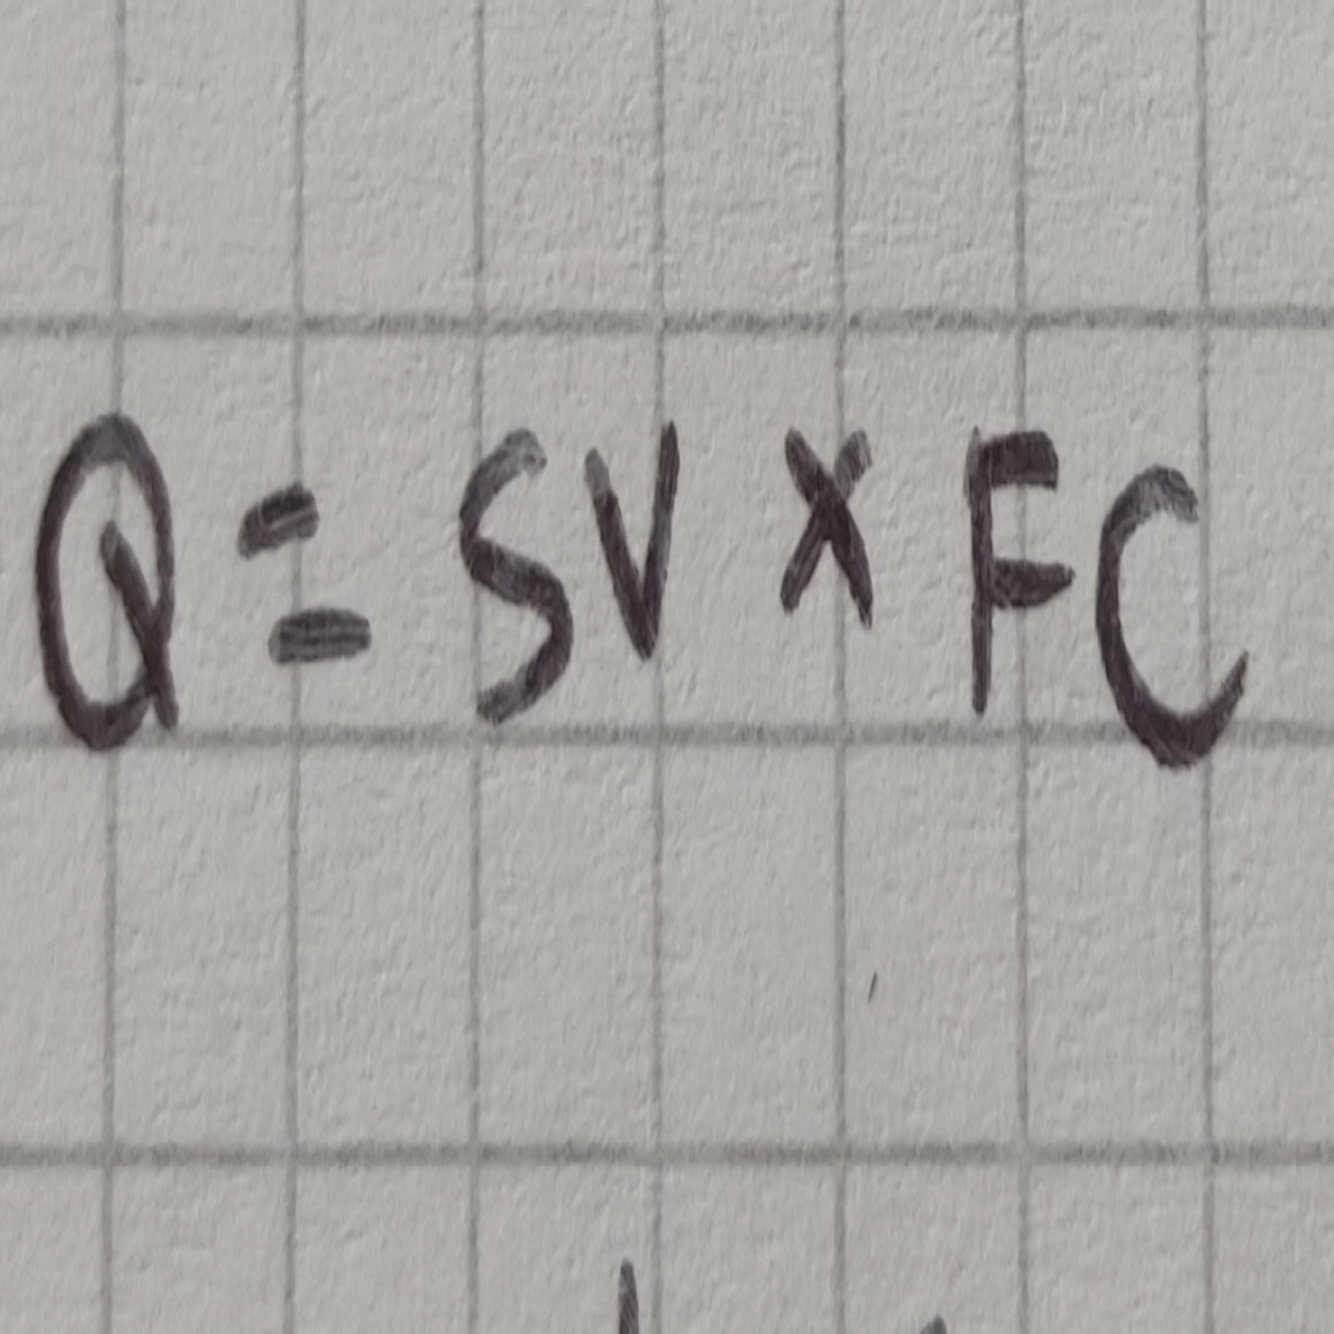 Q = SV x FC